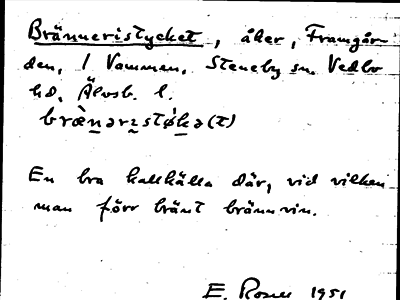 Bränneristycket, åker, Framgår-
den, 1 Vammen, Steneby sn. Vedbo
hd, Älvsb. l.
bræ̀nərɪstø̀kə(t)
En bra kallkälla där, vid vilken
man förr bränt brännvin.
E. Rosell 1951